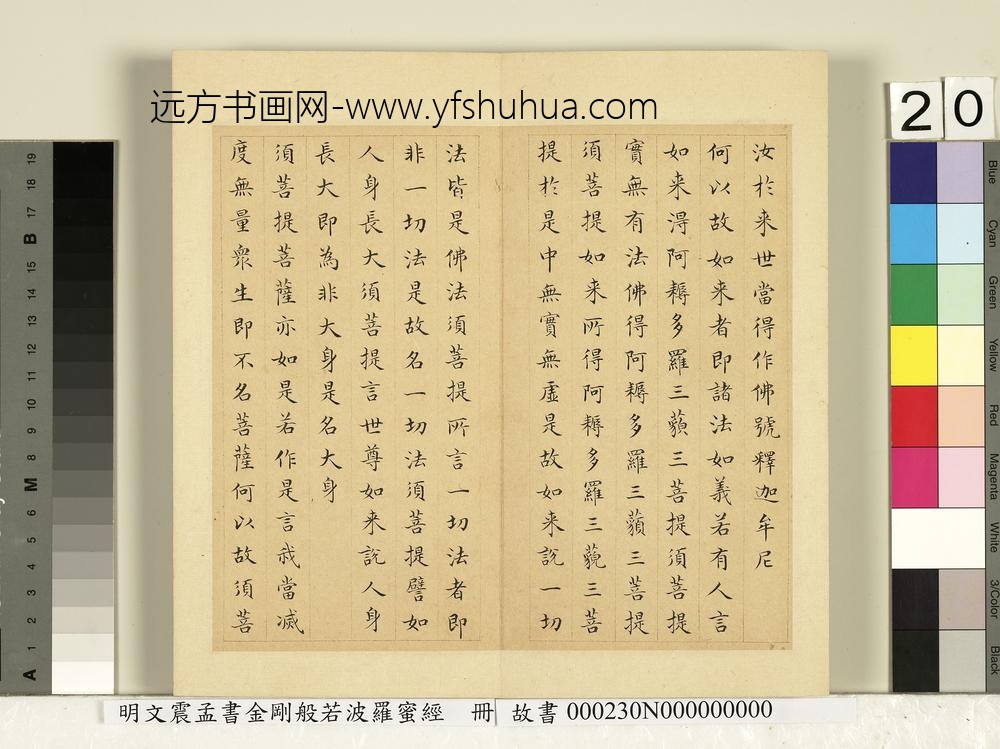 远方书画网-www.yfshuhua.com
汝於来世當得作佛號釋迦牟尼
何以故如来者即諸法如義若有人言
如来得阿耨多羅三藐三菩提須菩提
實無有法佛得阿耨多羅三藐三菩提
須菩提如来所得阿耨多羅三藐三菩
提於是中無實無虛是故如来說一切
法皆是佛法須菩提所言一切法者即
非一切法是故名一切法須菩提譬如
人身長大須菩提言世尊如来說人身
長大即為非大身是名大身
須菩提菩薩亦如是若作是言我當滅
度無量衆生即不名菩薩何以故須菩
20
Blue
Cyan
Green
Yellow
Red
Magenta
White
3/Color
Black
19
18
17
B
15
14
13
12
11
10
9
8
M
6
5
4
3
2
1
A
明文震孟書金剛般若波羅蜜經 冊 故書 000230N000000000